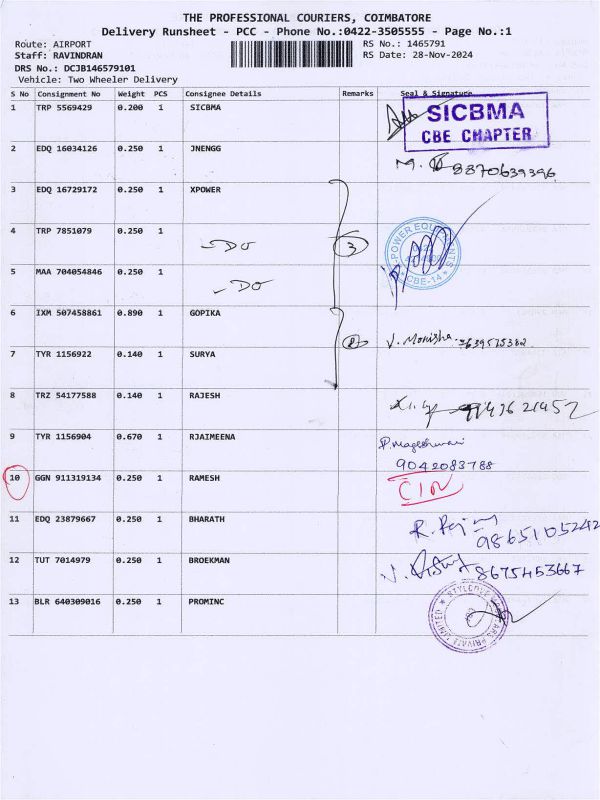 THE PROFESSIONAL COURIERS, COIMBATORE
Delivery Runsheet - PCC - Phone No.:0422-3505555 - Page No.:1
Route: AIRPORT
RS No.: 1465791
Staff: RAVINDRAN
RS Date: 28-Nov-2024
DRS No.: DCJB146579101
Vehicle: Two Wheeler Delivery
S No Consignment No Weight PCS Consignee Details Remarks Seal & Signature
1 TRP 5569429 0.200 1 SICBMA
SICBMA
CBE CHAPTER
2 EDQ 16034126 0.250 1 JNENGG
8870639396
3 EDQ 16729172 0.250 1 XPOWER
4 TRP 7851079 0.250 1
- DO
3
CBE-14
5 MAA 704054846 0.250 1
- DO
6 IXM 507458861 0.890 1 GOPIKA
V. Monisha 7639575382
7 TYR 1156922 0.140 1 SURYA
8 TRZ 54177588 0.140 1 RAJESH
9143621452
9 TYR 1156904 0.670 1 RJAIMEENA
P. Mageshwari
9042083788
10 GGN 911319134 0.250 1 RAMESH
11 EDQ 23879667 0.250 1 BHARATH
98651105242
12 TUT 7014979 0.250 1 BROEKMAN
8675453667
13 BLR 640309016 0.250 1 PROMINC
PRIVATE LIMITED